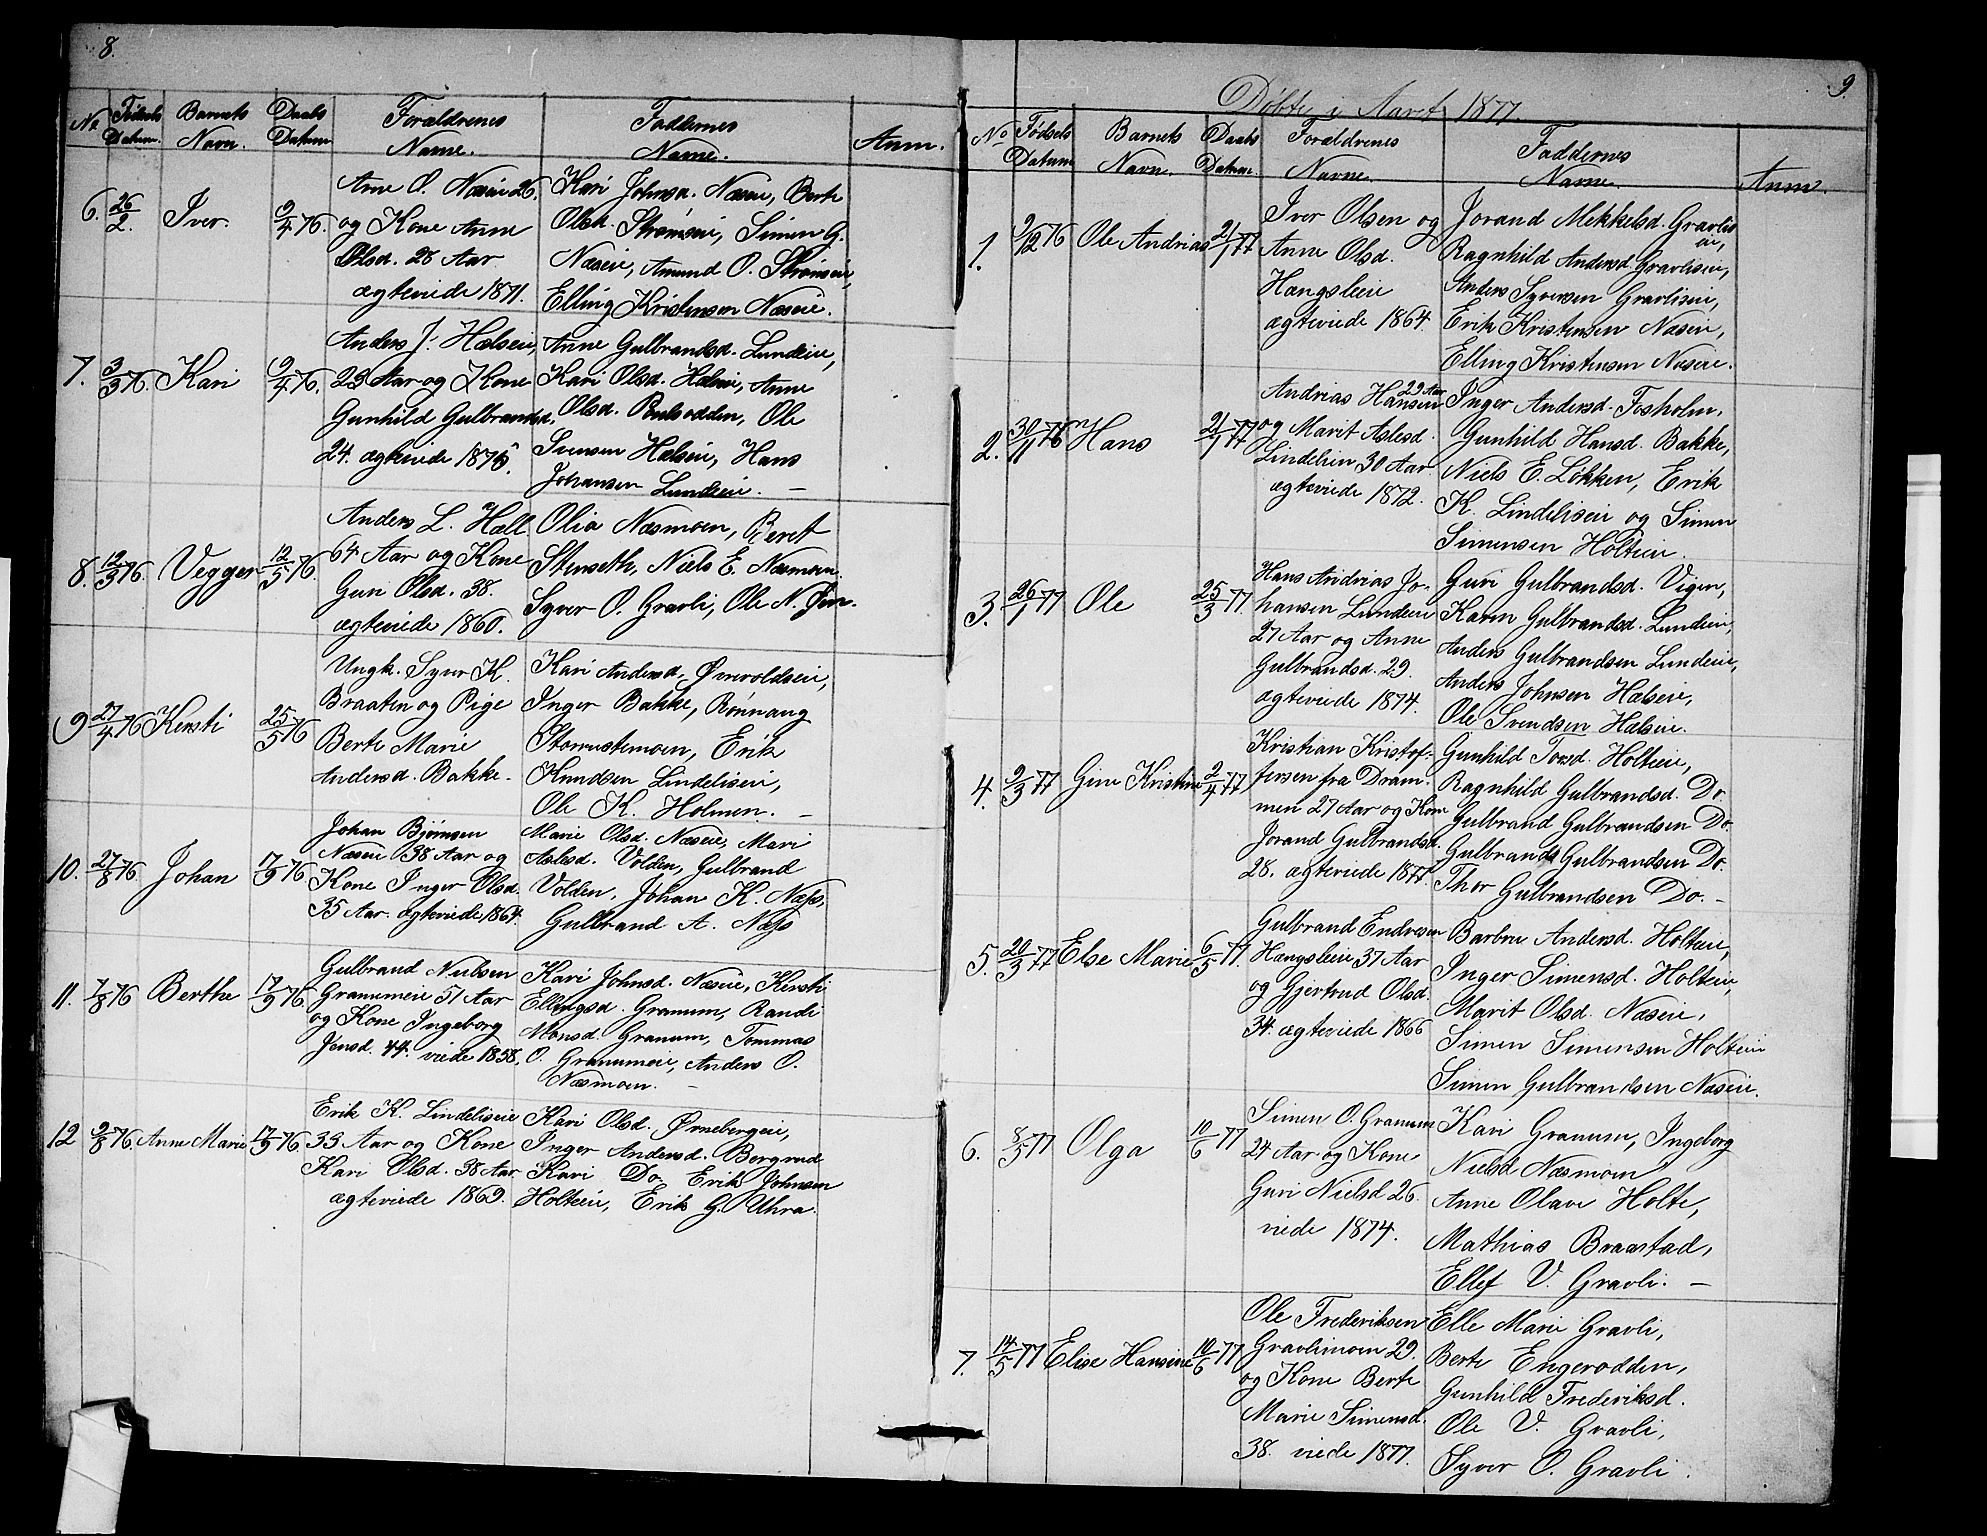 8.
No. Fødsels Datum. Barnets Navn. Daabs Datum Forældrenes Navne. Faddernes Navne. Anm.
6. 26/2. Iver. 9/4 76.
Arne O. Næseie 26.
og Kone Anne
Olsd. 28 Aar
ægteviede 1871.
Kari Johnsd. Næseie, Berte
Olsd. Strømseie, Simen G.
Næseie, Amund O. Strømseie,
Elling Kristensen Næseie.
7. 3/3 76. Kari 9/4 76.
Anders J. Hælseie,
23 Aar og Kone
Gunhild Gulbrandsd.
24. ægteviede 1875.
Anne Gulbrandsd. Lundeie,
Kari Olsd. Hælseie, Anne
Olsd. Poulsodden, Ole
Svensen Hælseie, Hans
Johansen Lundeie. —
8. 12/3 76. Vegger 12/5 76.
Anders L. Hæll
64 Aar og Kone
Guri Olsd. 38.
ægteviede 1860.
Olia Næsmoen, Beret
Stenseth, Niels E. Næsmoen.
Syver O. Gravli, Ole N.
9 27/4 76 Kersti 25/5 76
Ungk. Syver K.
Braaten og Pige
Berte Marie
Andersd. Bakke.
Kari Andersd. Øvrvoldseie,
Inger Bakke, Rønnaug
Storrustemoen, Erik
Knudsen Lindeliseie,
Ole K. Holmen. —
10. 27/8 76. Johan 17/9 76.
Johan Bjørnsen
Næseie 38 Aar og
Kone Inger Olsd.
35 Aar. ægteviede 1864.
Marie Olsd. Næseie, Mari
Aslesd. Volden, Gulbrand
Volden, Johan K. Næss,
Gulbrand A. Næss
11. 7/8 76 Berthe 17/9 76.
Gulbrand Nielsen
Granumeie 51 Aar
og Kone Ingeborg
Jensd. 44. viede 1858.
Kari Johnsd. Næseie, Kersti
Ellingsd. Granum, Randi
Monsd. Granum, Tommas
O. Granumeie, Anders O.
Næsmoen. —
12 9/8 76. Anne Marie 17/9 76.
Erik K. Lindeliseie
33 Aar og Kone
Kari Olsd. 38 Aar
ægteviede 1869.
Kari Olsd. Ørnebergeie,
Inger Andersd. Bergrud
Kari Do, Erik Johnsen
Holteie, Erik G. Uhra.
9.
Døbte i Aaret 1877.
No Fødsels Datum Barnets Navn. Daabs Datum. Forældrenes Navne. Faddernes Navne. Anm.
1. 9/12 76 Ole Andrias 21/1 77
Iver Olsen og
Anne Olsd.
Hængsleeie
ægteviede 1864
Jorand Mekkelsd. Gravlis
eie,
Ragnhild Andersd Gravliseie,
Anders Syversen Gravliseie,
Erik Kristensen Næseie,
Elling Kristensen Næseie.
2. 30/11 76 Hans 21/1 77
29 Aar
Andrias Hansen
og Marit Aslesd.
Lindelien 30 Aar
ægteviede 1872.
Inger Andersd. Fosholm,
Gunhild Hansd. Bakke,
Niels E. Løkken, Erik
K. Lindeliseie og Simen
Simensen Holteie.
3. 26/1 77 Ole 25/3 77.
Hans Andrias Jo-
hansen Lundeie
27 Aar og Anne
Gulbrandsd. 29.
ægteviede 1874.
Guri Gulbrandsd. Vigen,
Karen Gulbrandsd. Lundeie,
Anders Gulbrandsen Lundeie,
Anders Johnsen Hælseie,
Ole Svendsen Hælseie.
4. 9/3 77 Gine Kristine 2/4 77
Kristian Kristof-
fersen fra Dram-
men 27 Aar og Kone
Jorand Gulbrandsd.
28. ægteviede 1877.
Gunhild Torsd. Holteie,
Ragnhild Gulbrandsd. Do
Gulbrand Gulbrandsen Do.
Gulbrand Gulbrandsen Do.
Thor Gulbrandsen Do. —
5. 20/3 77 Else Marie 6/5 77.
Gulbrand Endresen
Hængsleeie 37 Aar
og Gjertrud Olsd.
34. ægteviede 1866
Barbru Andersd. Holteie,
Inger Simensd. Holteie,
Marit Olsd. Næseie,
Simen Simensen Holteie
Simen Gulbrandsen Næseie.
6. 8/5 77 Olga 10/6 77
Simen O. Granum
24 Aar og Kone
Guri Nielsd 26.
viede 1874.
Kari Granum, Ingeborg
Nielsd Næsmoen
Anne Olave Holte,
Mathias Braastad,
Ellef V. Gravli. —
7. 14/5 77 Elise Hansine 10/6 77
Ole Frederiksen
Gravlimoen 29.
og Kone Berte
Marie Simensd.
38. viede 1877.
Elle Marie Gravli,
Berte Engerodden,
Gunhild Frederiksd.
Ole V. Gravli,
Syver O. Gravli.